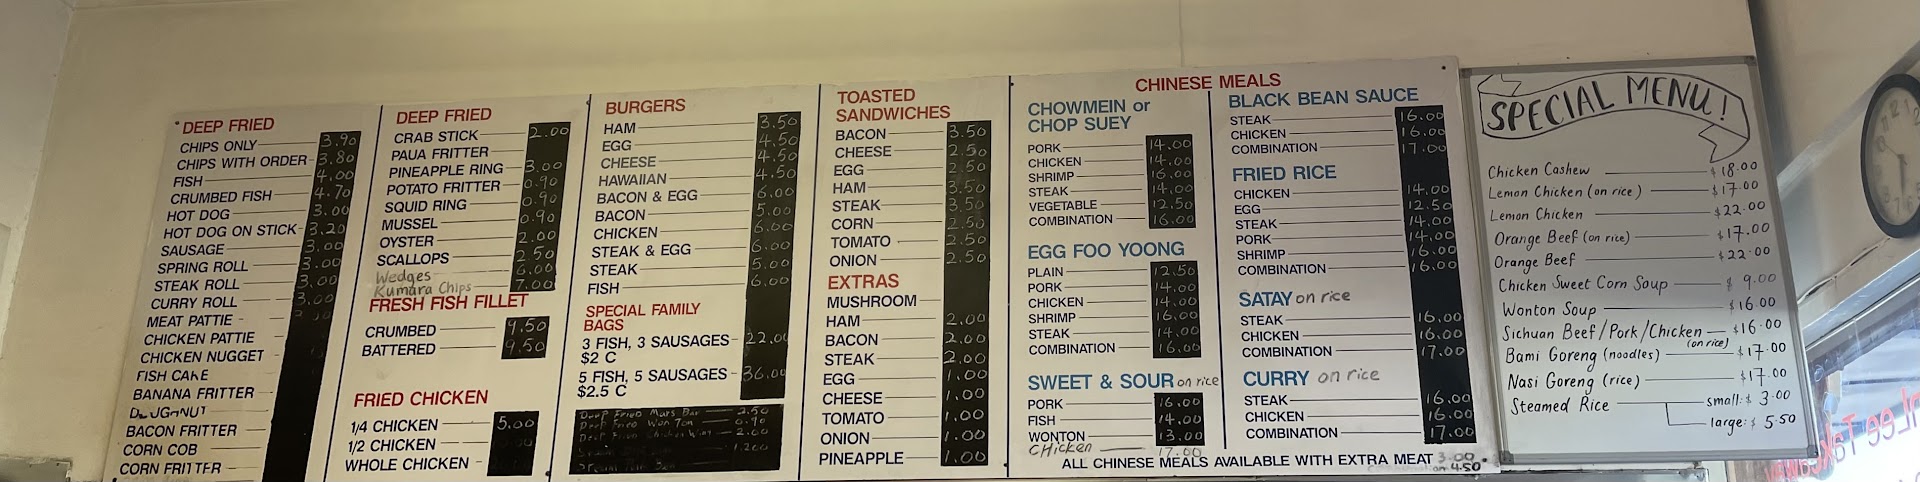 DEEP FRIED
CHIPS ONLY 3.90
CHIPS WITH ORDER 3.80
FISH 4.00
CRUMBED FISH 4.70
HOT DOG 3.00
HOT DOG ON STICK 3.20
SAUSAGE 3.00
SPRING ROLL 3.00
STEAK ROLL 3.00
CURRY ROLL 3.00
MEAT PATTIE
CHICKEN PATTIE
CHICKEN NUGGET
FISH CAKE
BANANA FRITTER
DOUGHNUT
BACON FRITTER
CORN COB
CORN FRITTER
DEEP FRIED
CRAB STICK 2.00
PAUA FRITTER
PINEAPPLE RING 3.00
POTATO FRITTER 0.90
SQUID RING 0.90
MUSSEL 0.90
OYSTER 2.00
SCALLOPS 2.50
Wedges 6.00
Kumara Chips 7.00
FRESH FISH FILLET
CRUMBED 9.50
BATTERED 9.50
FRIED CHICKEN
1/4 CHICKEN 5.00
1/2 CHICKEN
WHOLE CHICKEN
BURGERS
HAM 3.50
EGG 4.50
CHEESE 4.50
HAWAIIAN 4.50
BACON & EGG 6.00
BACON 5.00
CHICKEN 6.00
STEAK & EGG 6.00
STEAK 5.00
FISH 6.00
SPECIAL FAMILY
BAGS
3 FISH, 3 SAUSAGES 22.00
$2 C
5 FISH, 5 SAUSAGES 36.00
$2.5 C
Deep Fried Mars Bar 2.50
Deep Fried Won Ton 0.90
Deep Fried Chicken Wing 2.00
TOASTED
SANDWICHES
BACON 3.50
CHEESE 2.50
EGG 2.50
HAM 3.50
STEAK 3.50
CORN 2.50
TOMATO 2.50
ONION 2.50
EXTRAS
MUSHROOM
HAM 2.00
BACON 2.00
STEAK 2.00
EGG 1.00
CHEESE 1.00
TOMATO 1.00
ONION 1.00
PINEAPPLE 1.00
CHINESE MEALS
CHOWMEIN or
CHOP SUEY
PORK 14.00
CHICKEN 14.00
SHRIMP 16.00
STEAK 14.00
VEGETABLE 12.50
COMBINATION 16.00
EGG FOO YOONG
PLAIN 12.50
PORK 14.00
CHICKEN 14.00
SHRIMP 16.00
STEAK 14.00
COMBINATION 16.00
SWEET & SOUR on rice
PORK 16.00
FISH 14.00
WONTON 13.00
CHicken 17.00
BLACK BEAN SAUCE
STEAK 16.00
CHICKEN 16.00
COMBINATION 17.00
FRIED RICE
CHICKEN 14.00
EGG 12.50
STEAK 14.00
PORK 14.00
SHRIMP 16.00
COMBINATION 16.00
SATAY on rice
STEAK 16.00
CHICKEN 16.00
COMBINATION 17.00
CURRY on rice
STEAK 16.00
CHICKEN 16.00
COMBINATION 17.00
ALL CHINESE MEALS AVAILABLE WITH EXTRA MEAT 3.00
4.50
SPECIAL MENU!
Chicken Cashew $18.00
Lemon Chicken (on rice) $17.00
Lemon Chicken $22.00
Orange Beef (on rice) $17.00
Orange Beef $22.00
Chicken Sweet Corn Soup $9.00
Wonton Soup $16.00
Sichuan Beef/Pork/Chicken (on rice) $16.00
Bami Goreng (noodles) $17.00
Nasi Goreng (rice) $17.00
Steamed Rice small: $3.00
large: $5.50